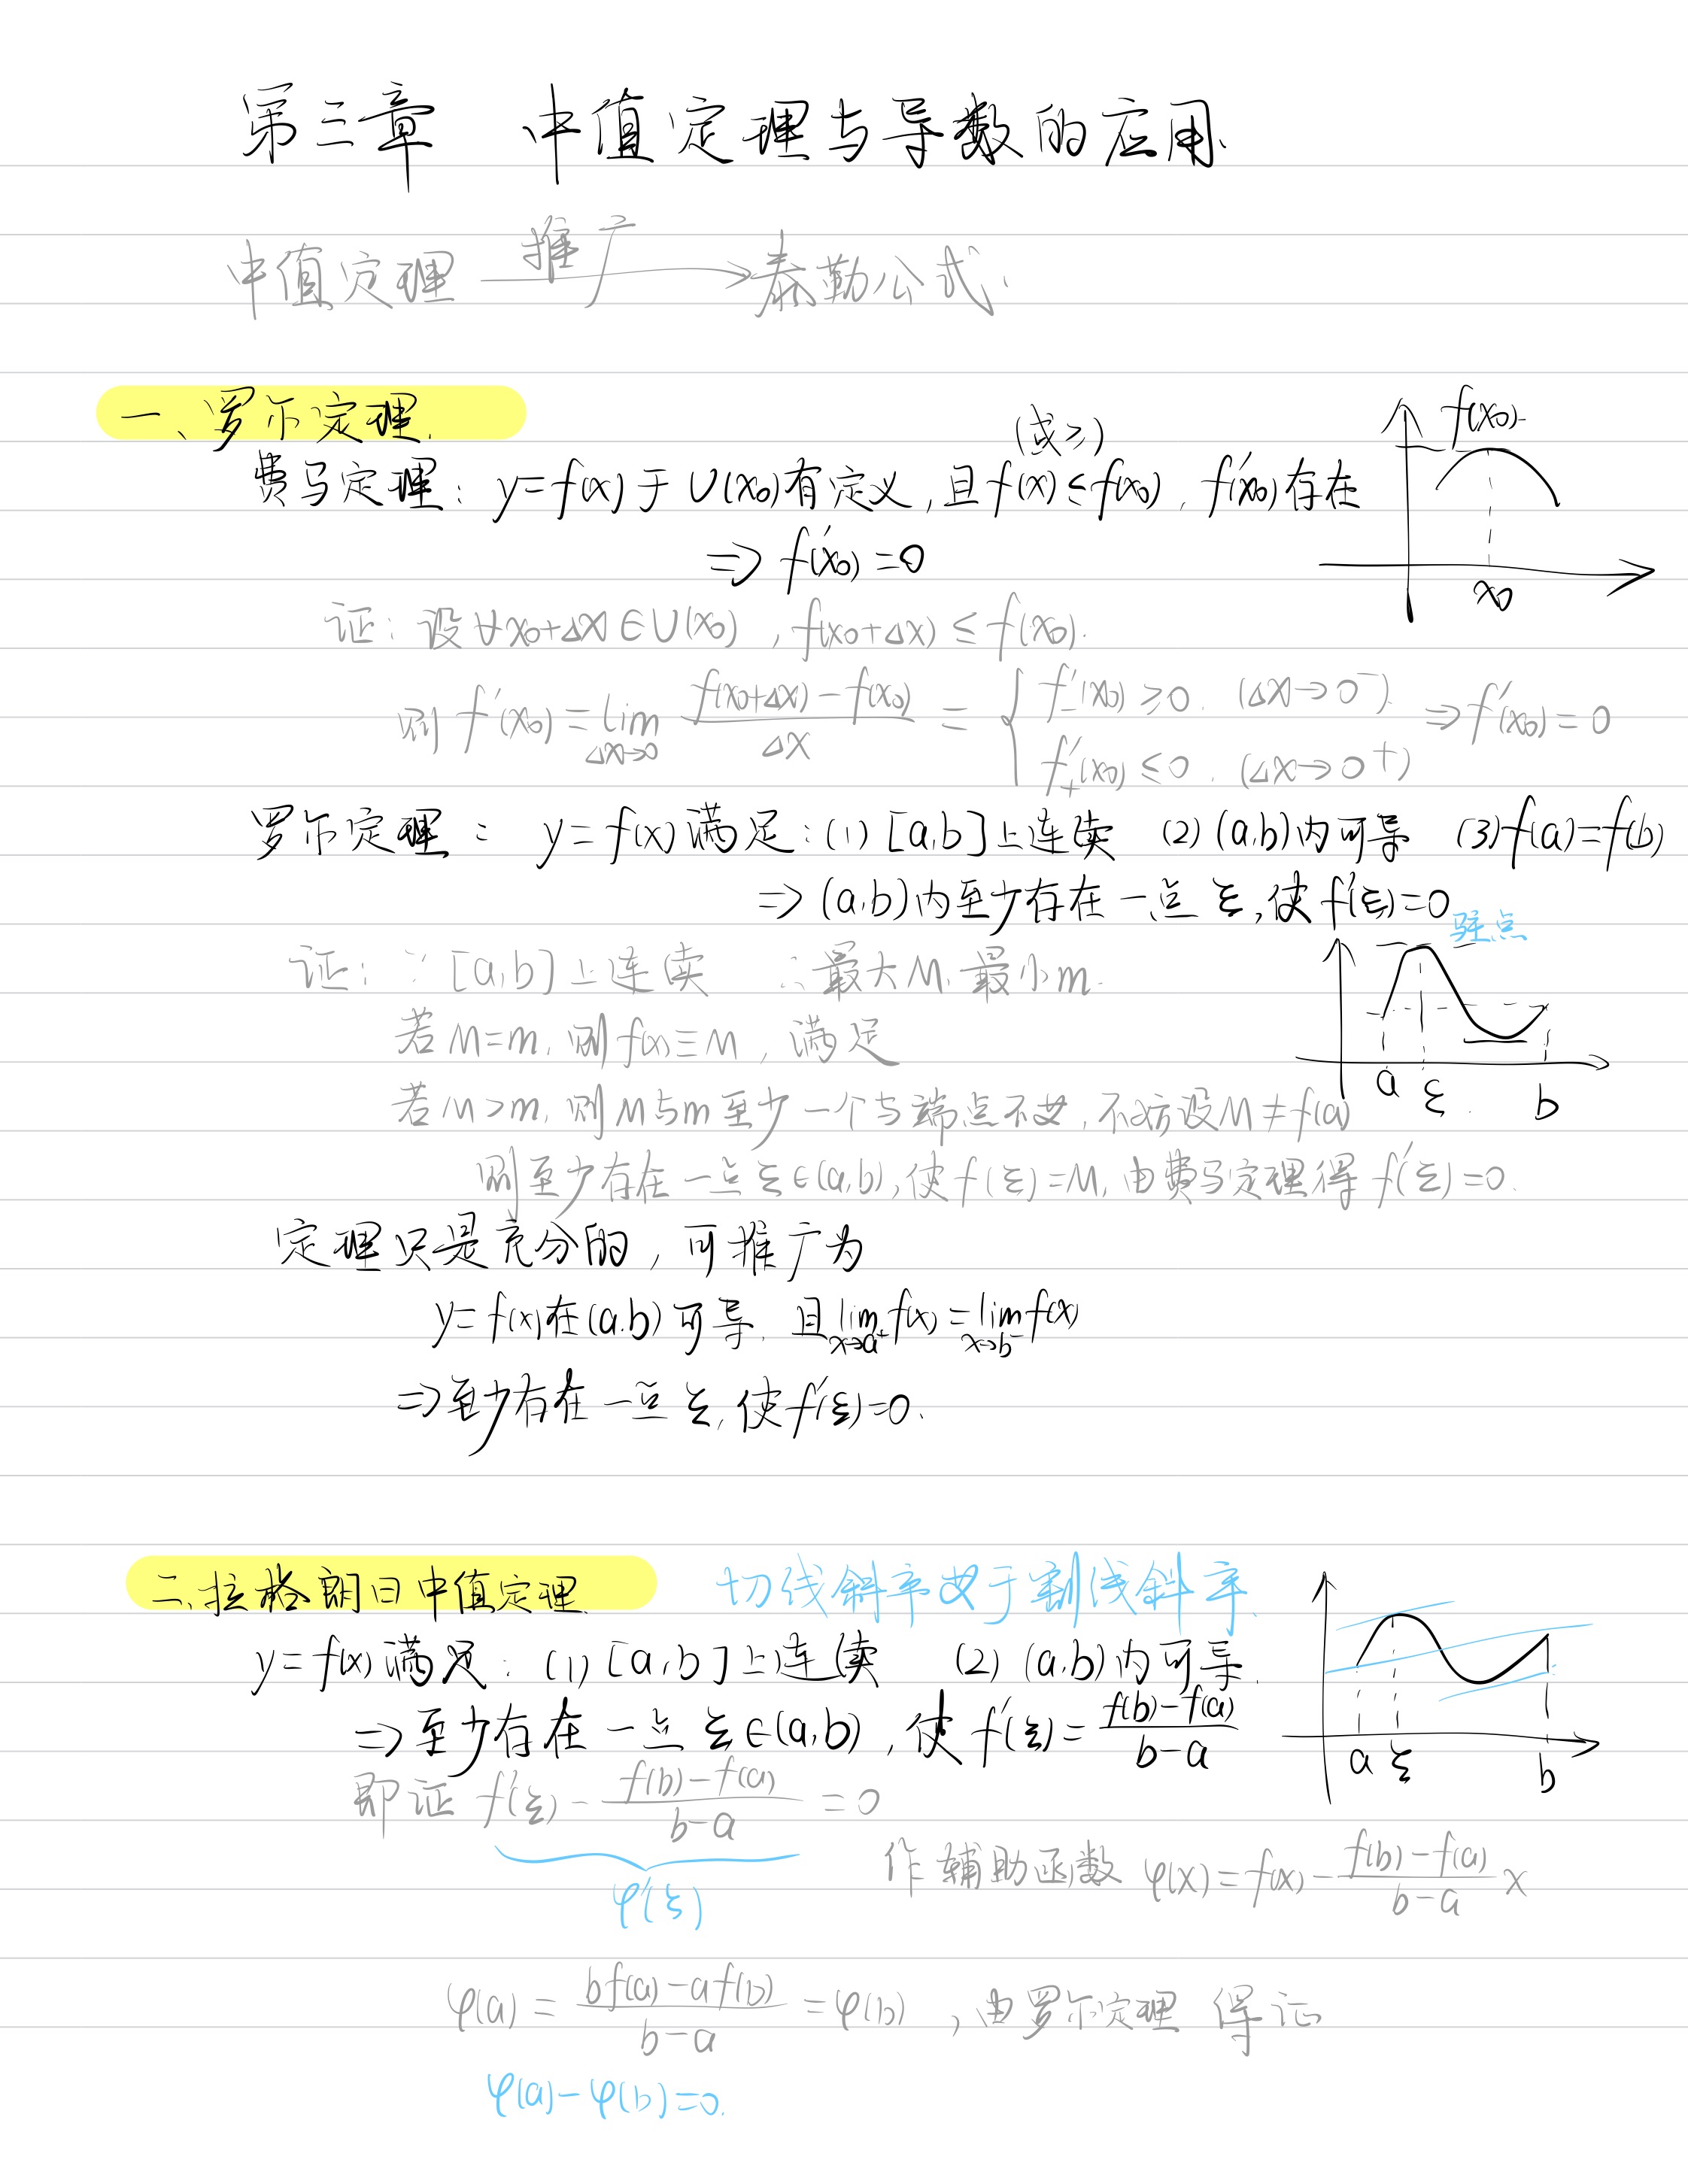 第三章 中值定理与导数的应用
中值定理 —推广→ 泰勒公式.
一、罗尔定理.
(或≥)
费马定理: y=f(x)于U(x₀)有定义,且f(x)≤f(x₀), f'(x₀)存在
⇒ f'(x₀)=0
f(x₀)
x₀
证: 设∀x₀+Δx∈U(x₀), f(x₀+Δx)≤f(x₀).
则 f'(x₀)=lim_{Δx→0} (f(x₀+Δx)-f(x₀))/Δx = { f'₋(x₀)≥0. (Δx→0⁻) ; f'₊(x₀)≤0. (Δx→0⁺) ⇒f'(x₀)=0
罗尔定理: y=f(x)满足:(1)[a,b]上连续 (2)(a,b)内可导 (3)f(a)=f(b)
⇒(a,b)内至少存在一点ξ,使f'(ξ)=0
驻点
证: ∵[a,b]上连续 ∴最大M,最小m.
若M=m,则f(x)≡M,满足
a ξ b
若M>m,则M与m至少一个与端点不等,不妨设M≠f(a)
则至少存在一点ξ∈(a,b),使f(ξ)=M,由费马定理得f'(ξ)=0.
定理只是充分的,可推广为
y=f(x)在(a,b)可导,且lim_{x→a⁺}f(x)=lim_{x→b⁻}f(x)
⇒至少存在一点ξ,使f'(ξ)=0.
二、拉格朗日中值定理. 切线斜率等于割线斜率.
y=f(x)满足:(1)[a,b]上连续 (2)(a,b)内可导.
⇒至少存在一点ξ∈(a,b),使f'(ξ)=(f(b)-f(a))/(b-a)
a ξ b
即证 f'(ξ)-(f(b)-f(a))/(b-a)=0
φ'(ξ)
作辅助函数 φ(x)=f(x)-(f(b)-f(a))/(b-a) x
φ(a)=(bf(a)-af(b))/(b-a)=φ(b),由罗尔定理 得证
φ(a)-φ(b)=0.